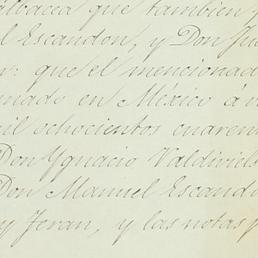 albacea que tambien
l Escandon, y Don Ju
n: que el mencionad
mado en México á v
il ochocientos cuaren
Don Ygnacio Valdiviels
Don Manuel Escand
y Teran, y las notas p